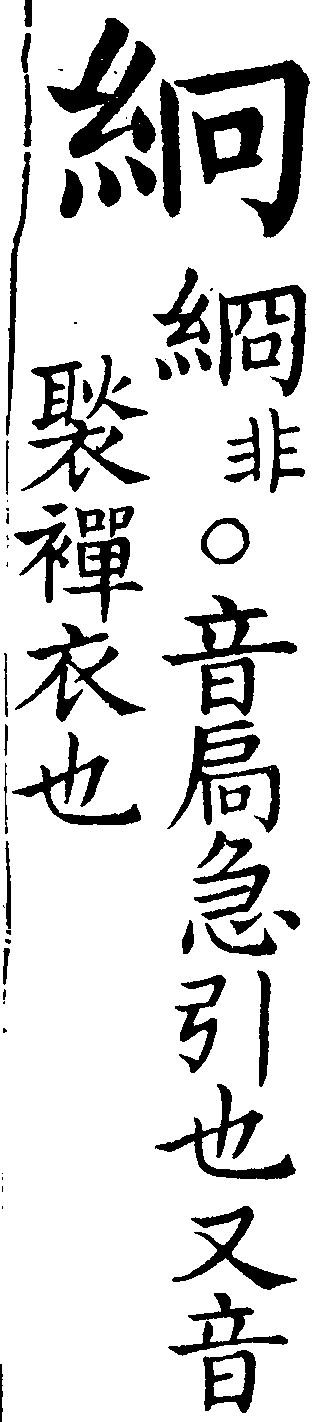 絅
綗非○音扃急引也又音
褧襌衣也